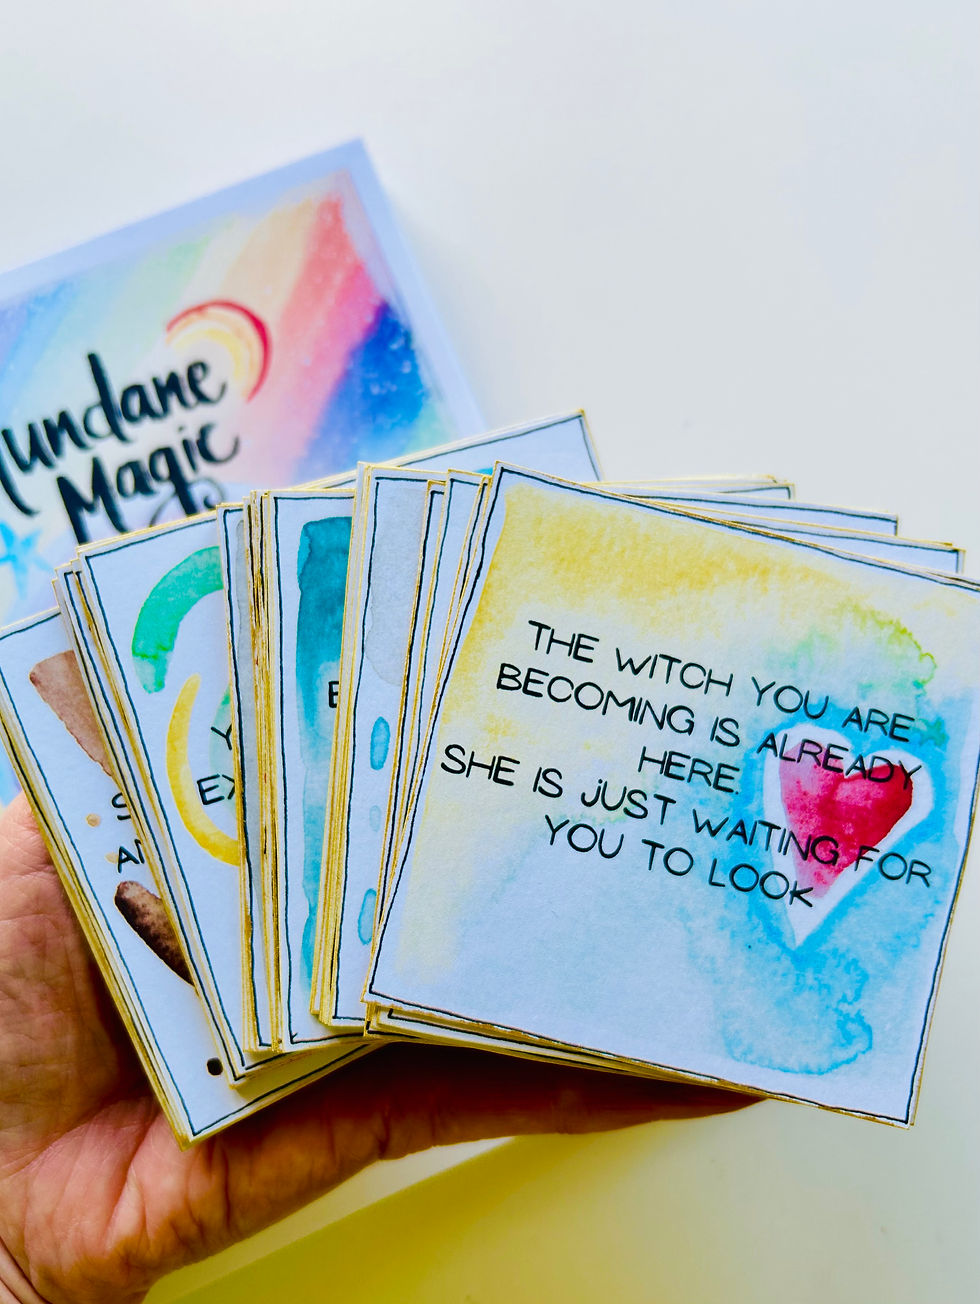 Mundane
Magic
THE WITCH YOU ARE
BECOMING IS ALREADY
HERE.
SHE IS jUST WAITING FOR
YOU TO LOOK